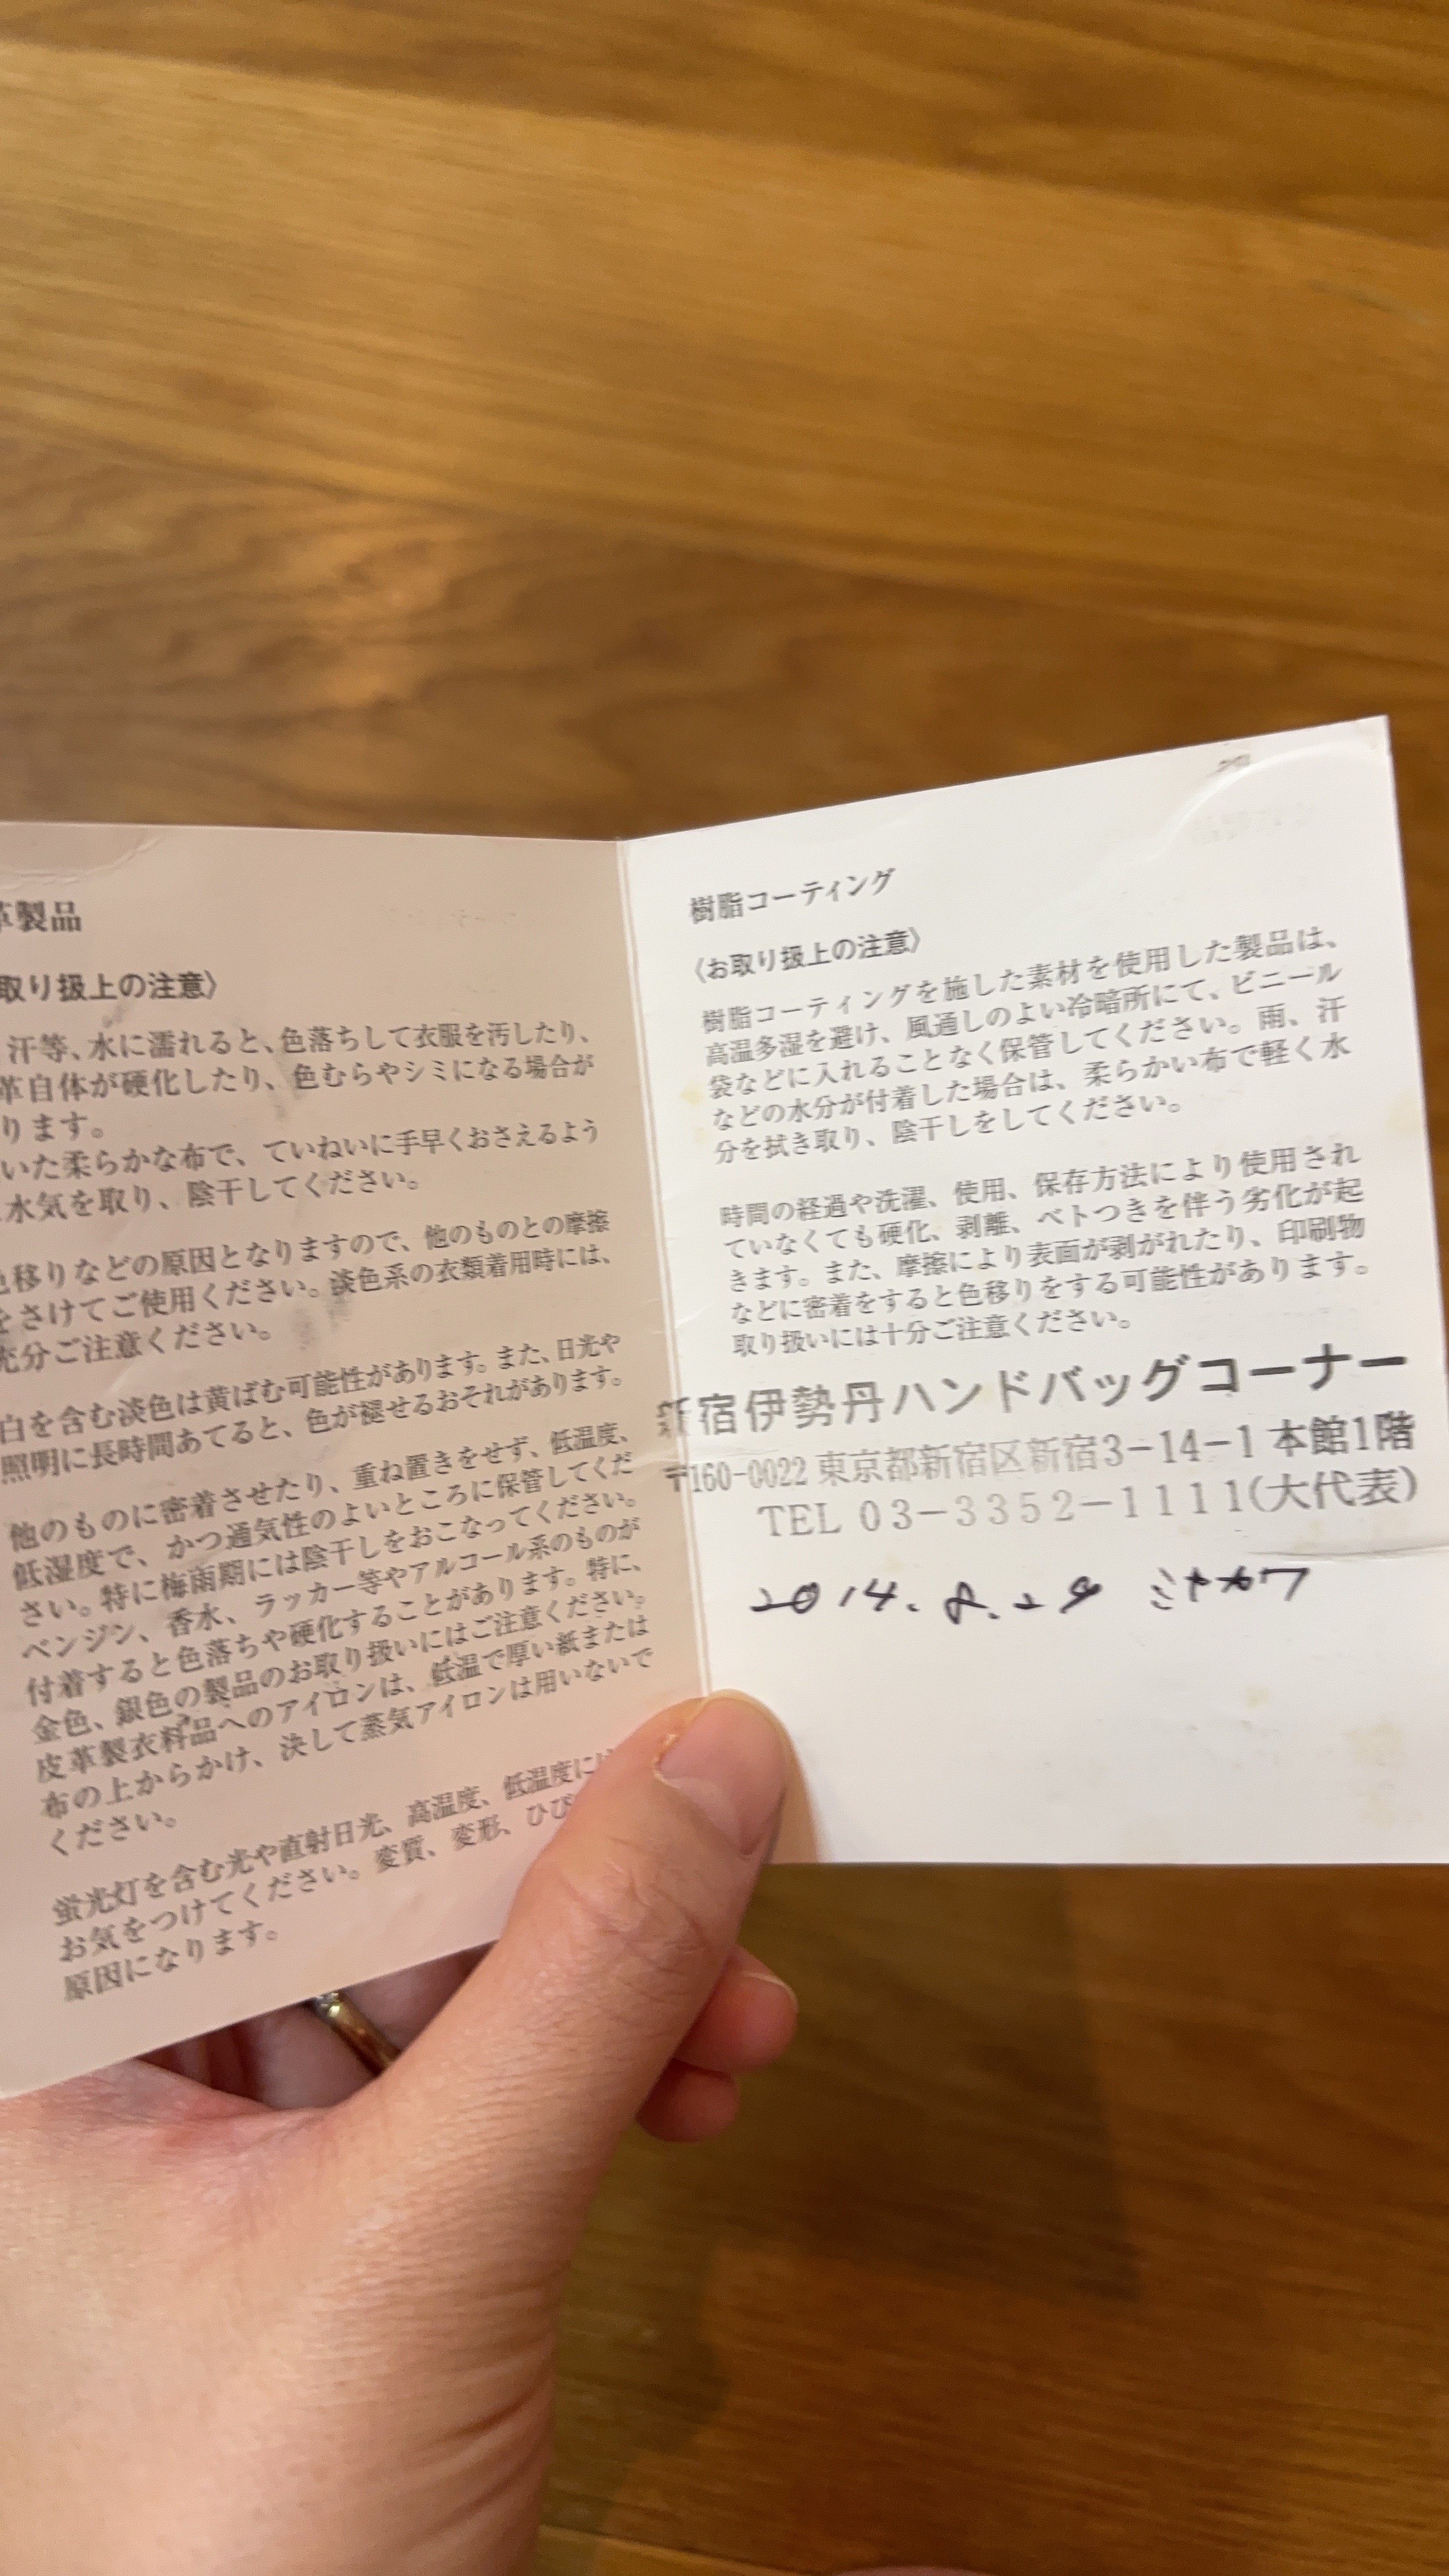 革製品
取り扱上の注意〉
汗等、水に濡れると、色落ちして衣服を汚したり、
革自体が硬化したり、色むらやシミになる場合が
ります。
いた柔らかな布で、ていねいに手早くおさえるよう
水気を取り、陰干してください。
色移りなどの原因となりますので、他のものとの摩擦
をさけてご使用ください。淡色系の衣類着用時には、
充分ご注意ください。
白を含む淡色は黄ばむ可能性があります。また、日光や
照明に長時間あてると、色が褪せるおそれがあります。
他のものに密着させたり、重ね置きをせず、低温度、
低湿度で、かつ通気性のよいところに保管してくだ
さい。特に梅雨期には陰干しをおこなってください。
ベンジン、香水、ラッカー等やアルコール系のものが
付着すると色落ちや硬化することがあります。特に、
金色、銀色の製品のお取り扱いにはご注意ください。
皮革製衣料品へのアイロンは、低温で厚い紙または
布の上からかけ、決して蒸気アイロンは用いないで
ください。
蛍光灯を含む光や直射日光、高温度、低温度には
お気をつけてください。変質、変形、ひび
原因になります。
樹脂コーティング
〈お取り扱上の注意〉
樹脂コーティングを施した素材を使用した製品は、
高温多湿を避け、風通しのよい冷暗所にて、ビニール
袋などに入れることなく保管してください。雨、汗
などの水分が付着した場合は、柔らかい布で軽く水
分を拭き取り、陰干しをしてください。
時間の経過や洗濯、使用、保存方法により使用され
ていなくても硬化、剥離、ベトつきを伴う劣化が起
きます。また、摩擦により表面が剥がれたり、印刷物
などに密着をすると色移りをする可能性があります。
取り扱いには十分ご注意ください。
新宿伊勢丹ハンドバッグコーナー
〒160-0022 東京都新宿区新宿3-14-1 本館1階
TEL 03-3352-1111(大代表)
2014.8.29